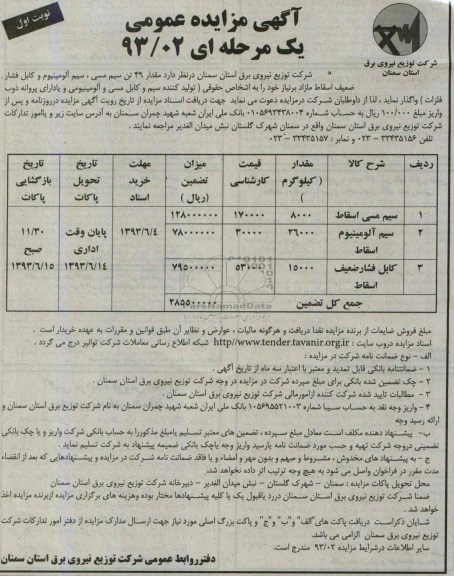 نوبت اول
آگهی مزایده عمومی
یک مرحله ای ۹۳/۰۲
شرکت توزیع نیروی برق
استان سمنان
شرکت توزیع نیروی برق استان سمنان درنظر دارد مقدار ۴۹ تن سیم مسی ، سیم آلومینیوم و کابل فشار
ضعیف اسقاط مازاد برنیاز خود را به اشخاص حقوقی ( تولید کننده سیم و کابل مسی و آلومینیومی و یادارای پروانه ذوب
فلزات ) واگذار نماید ، لذا از داوطلبان شرکت درمزایده دعوت می نماید جهت دریافت اسناد مزایده از تاریخ رویت آگهی مزایده درروزنامه و پس از
واریز مبلغ ۱۰۰/۰۰۰ ریال به حساب شماره ۰۱۰۵۶۹۳۴۳۸۰۰۴ بانک ملی ایران شعبه شهید چمران سمنان به آدرس سایت زیر و یاامور تدارکات
شرکت توزیع نیروی برق استان سمنان واقع در سمنان شهرک گلستان نبش میدان الغدیر مراجعه نمایند .
تلفن ۳۳۴۳۵۱۵۶ - ۰۲۳ و نمابر : ۳۳۴۳۵۱۵۷ - ۰۲۳
ردیف شرح کالا مقدار ( کیلوگرم ) قیمت کارشناسی میزان تضمین (ریال ) مهلت خرید اسناد تاریخ تحویل پاکات تاریخ بازگشایی پاکات
۱ سیم مسی اسقاط ۸۰۰۰ ۱۷۰۰۰۰ ۱۲۸۰۰۰۰۰۰ ۱۳۹۳/۶/۴ پایان وقت اداری ۱۳۹۳/۶/۱۴ ۱۱/۳۰ صبح ۱۳۹۳/۶/۱۵
۲ سیم آلومینیوم اسقاط ۲۶۰۰۰ ۳۰۰۰۰ ۷۸۰۰۰۰۰۰
۳ کابل فشارضعیف اسقاط ۱۵۰۰۰ ۵۳۰۰۰ ۷۹۵۰۰۰۰۰
جمع کل تضمین ۲۸۵۵۰۰۰۰۰
مبلغ فروش ضایعات از برنده مزایده نقدا دریافت و هرگونه مالیات ، عوارض و نظایر آن طبق قوانین و مقررات به عهده خریدار است .
اسناد مزایده دروب سایت : http://www.tender.tavanir.org.ir شبکه اطلاع رسانی معاملات شرکت توانیر درج می گردد .
الف - نوع ضمانت نامه شرکت در مزایده :
۱ - ضمانتنامه بانکی قابل تمدید و معتبر با اعتبار سه ماه از تاریخ آگهی .
۲ - چک تضمین شده بانکی برای مبلغ سپرده شرکت در مزایده در وجه شرکت توزیع نیروی برق استان سمنان .
۳ - مطالبات تایید شده شرکت کننده ازامورمالی شرکت توزیع نیروی برق استان سمنان .
۴ - واریز وجه نقد به حساب سیبا شماره ۰۱۰۵۶۹۵۵۲۱۰۰۳ بانک ملی ایران شعبه شهید چمران سمنان به نام شرکت توزیع نیروی برق استان سمنان و
ارائه رسید وجه
ب- پیشنهاد دهنده مکلف است معادل مبلغ سپرده ، تضمین های معتبر تسلیم یامبلغ مذکوررا به حساب بانکی شرکت واریز و یا چک بانکی
تضمینی دروجه شرکت تهیه و حسب مورد ضمانت نامه یارسید واریز وجه یاچک بانکی ضمیمه پیشنهاد به شرکت تسلیم نماید .
ج - به پیشنهاد های مخدوش ، مشروط و مبهم و بدون مهر و امضاء و یا فاقد ضمانت نامه شرکت در مزایده و پیشنهادهایی که بعد از انقضاء
مدت مقرر در فراخوان واصل می شود به هیچ وجه ترتیب اثر داده نخواهد شد.
محل تحویل پاکات مزایده : سمنان - شهرک گلستان - نبش میدان الغدیر - دبیرخانه شرکت توزیع نیروی برق استان سمنان
ضمنا شرکت توزیع نیروی برق استان سمنان دررد یاقبول یک یا کلیه پیشنهادها مختار بوده وهزینه های برگزاری مزایده ازبرنده مزایده اخذ
خواهد شد .
شایان ذکراست دریافت پاکت های"الف" و"ب" و"ج" و پاکت بزرگ اصلی مورد نیاز جهت ارسال مدارک مزایده از دفتر امور تدارکات شرکت
توزیع نیروی برق سمنان الزامی می باشد.
سایر اطلاعات درشرایط مزایده ۹۳/۰۲ مندرج است.
دفترروابط عمومی شرکت توزیع نیروی برق استان سمنان